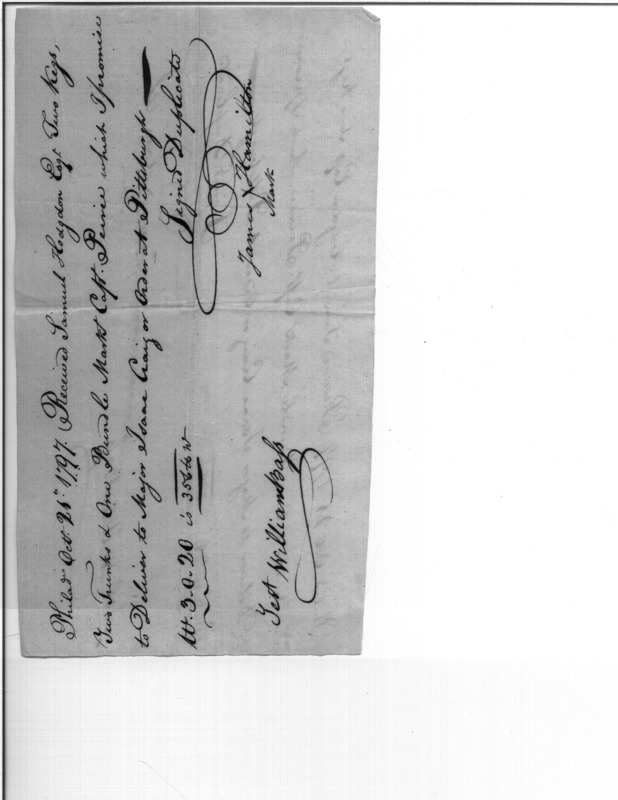 Philad.ª Octr. 25th. 1797. Received Samuel Hodgdon Esqr. Two Kegs,
Two Trunks & One Bundle Markt Capt. Peirce which I promise
to Deliver to Major Isaac Craig or Order at Pittsburgh
Wt. 3.0.20 is 356 lb wt
Signed Duplicate
James X Hamilton
Mark
Test William Bass